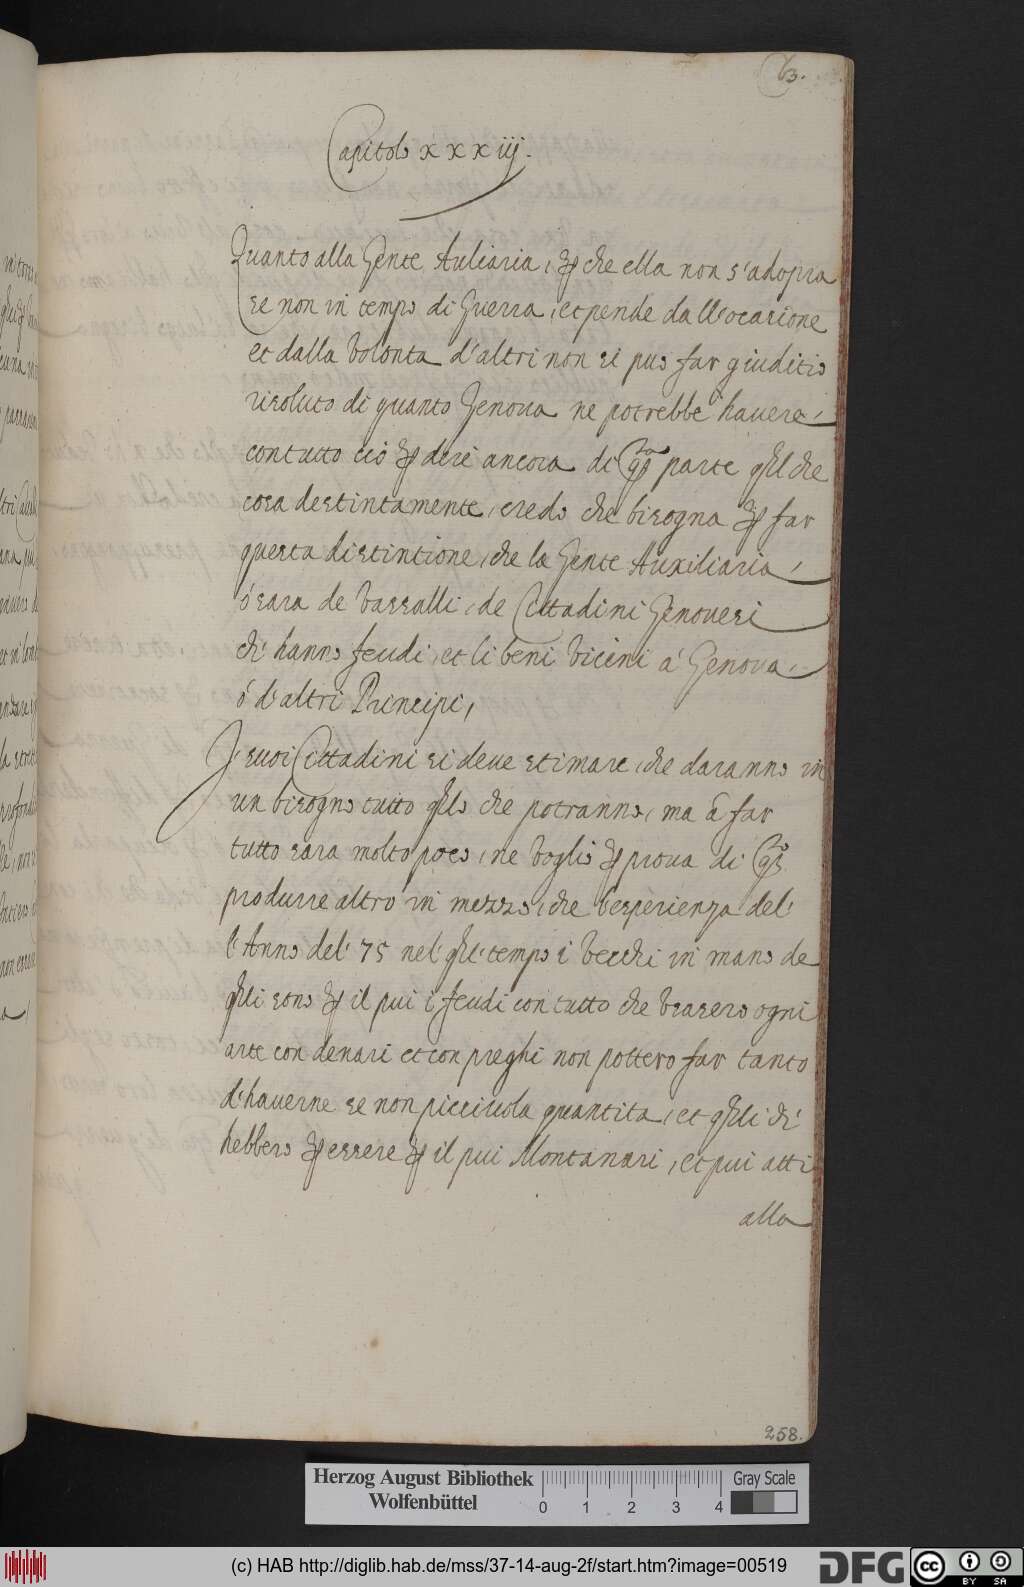 63.
Capitolo xxxiij.
Quanto alla Gente Auliaria, ꝑ che ella non s'adopra
se non in tempo di Guerra, et pende dall'ocasione
et dalla volonta d'altri non si puo far giuditio
risoluto di quanto Genova ne potrebbe havere,
contutto ciò ꝑ dire ancora di qsta parte qlche
cosa destintamente, credo che bisogna ꝑ far
questa distintione, che la Gente Auxiliaria,
ó sara de vassalli, de Cittadini Genovesi
ch' hanno feudi, et li beni vicini á Genova,
ó d'altri Principi,
I suoi Cittadini si deve stimare, che daranno in
un bisogno tutto qllo che potranno, ma á far
tutto sara molto poco, ne voglio ꝑ prova di qsto
produrre altro in mezzo, che l'esperienza del'
l'Anno del' 75 nel' qle' tempo i vecchi in mano de
qli sono ꝑ il piu i feudi con tutto che usassero ogni
arte con denari et con preghi non pottero far tanto
d'haverne se non picciuola quantita, et qlli ch'
hebbero ꝑ essere ꝑ il piu Montanari, et piu atti
alla
258.
Herzog August Bibliothek
Wolfenbüttel
0 1 2 3 4
Gray Scale
(c) HAB http://diglib.hab.de/mss/37-14-aug-2f/start.htm?image=00519
DFG
cc BY SA